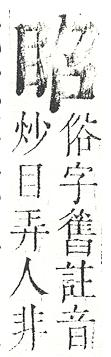 眧
俗字舊註音
炒目弄人非